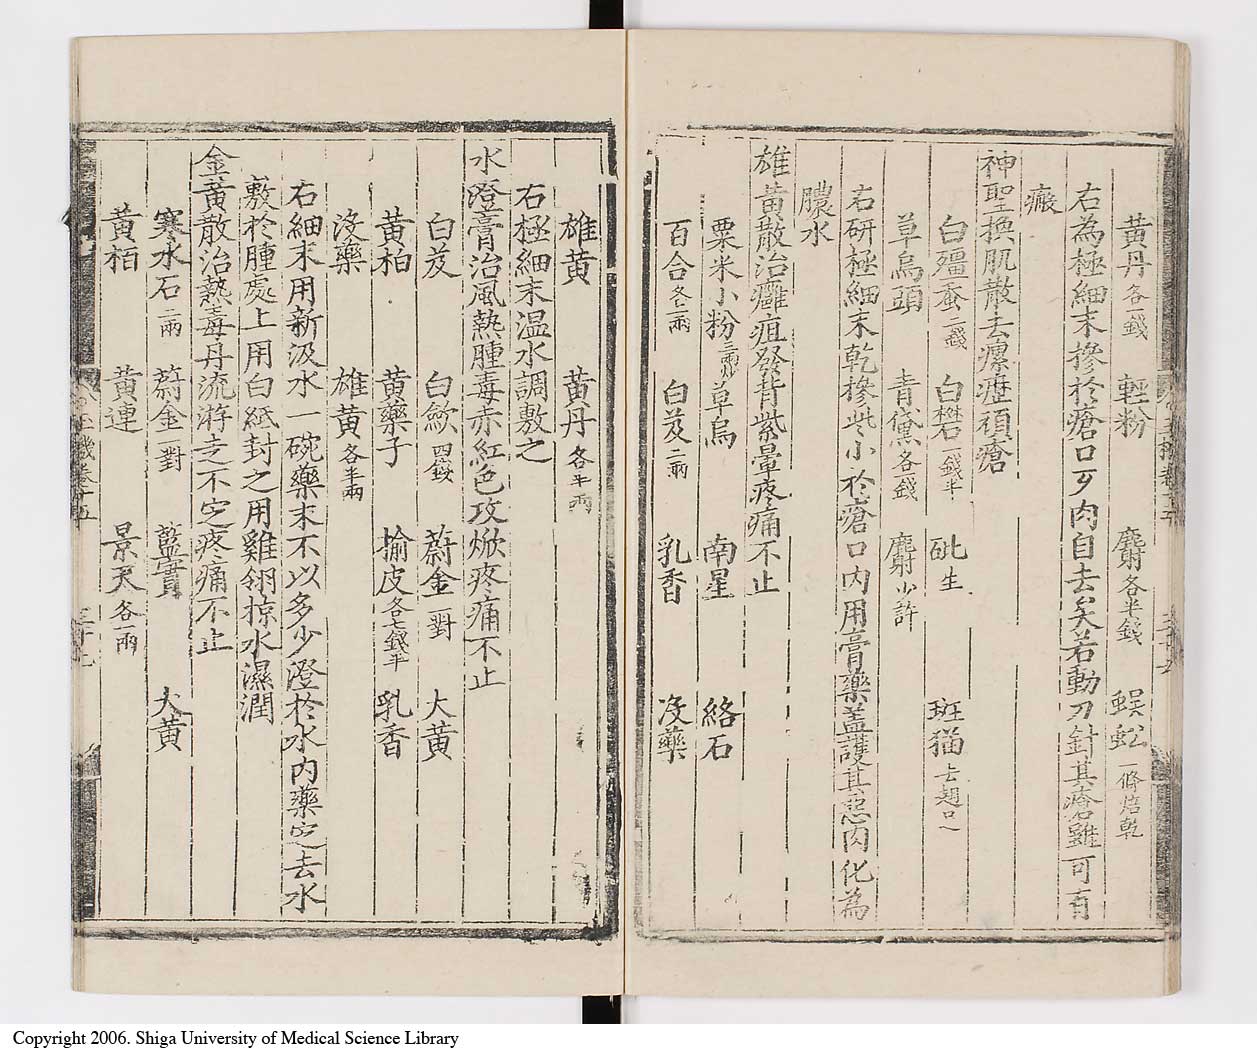 黄丹各一錢 輕粉 麝各半錢 蜈蚣一條焙乾
右為極細末摻於瘡口歹肉自去矣若動刀針其瘡雖可有
瘢
神聖換肌散去瘰癧頑瘡
白殭蚕一錢 白礬一錢半 砒生 斑猫去翅口
草烏頭 青黛各錢 麝少許
右研極細末乾摻些小於瘡口內用膏藥盖護其惡肉化為
膿水
雄黄散治癰疽發背紫暈疼痛不止
粟米小粉三兩炒 草烏 南星 絡石
百合各二兩 白芨二兩 乳香 没藥
雄黄 黄丹各半兩
右極細末温水調敷之
水澄膏治風熱腫毒赤紅色攻焮疼痛不止
白芨 白歛四錢 蔚金一對 大黄
黄柏 黄藥子 榆皮各七錢半 乳香
没藥 雄黄各半兩
右細末用新汲水一碗藥末不以多少澄於水內藥定去水
敷於腫處上用白紙封之用雞翎掠水濕潤
金黄散治熱毒丹流游走不定疼痛不止
寒水石二兩 蔚金一對 藍實 大黄
黄柏 黄連 景天各一兩
Copyright 2006. Shiga University of Medical Science Library